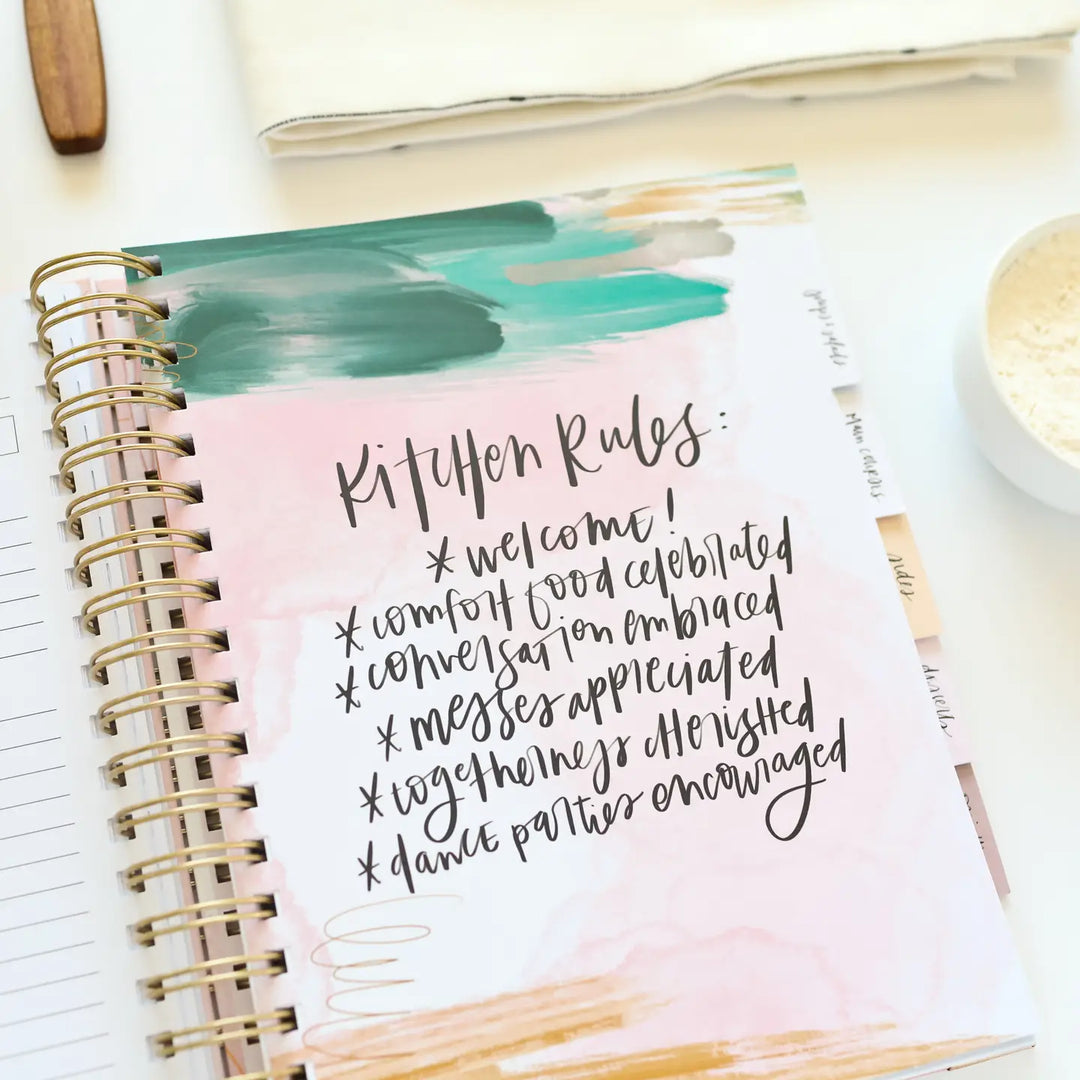 Kitchen Rules:
* welcome!
* comfort food celebrated
* conversation embraced
* messes appreciated
* togetherness cherished
* dance parties encouraged
soups & salads
Main courses
sides
desserts